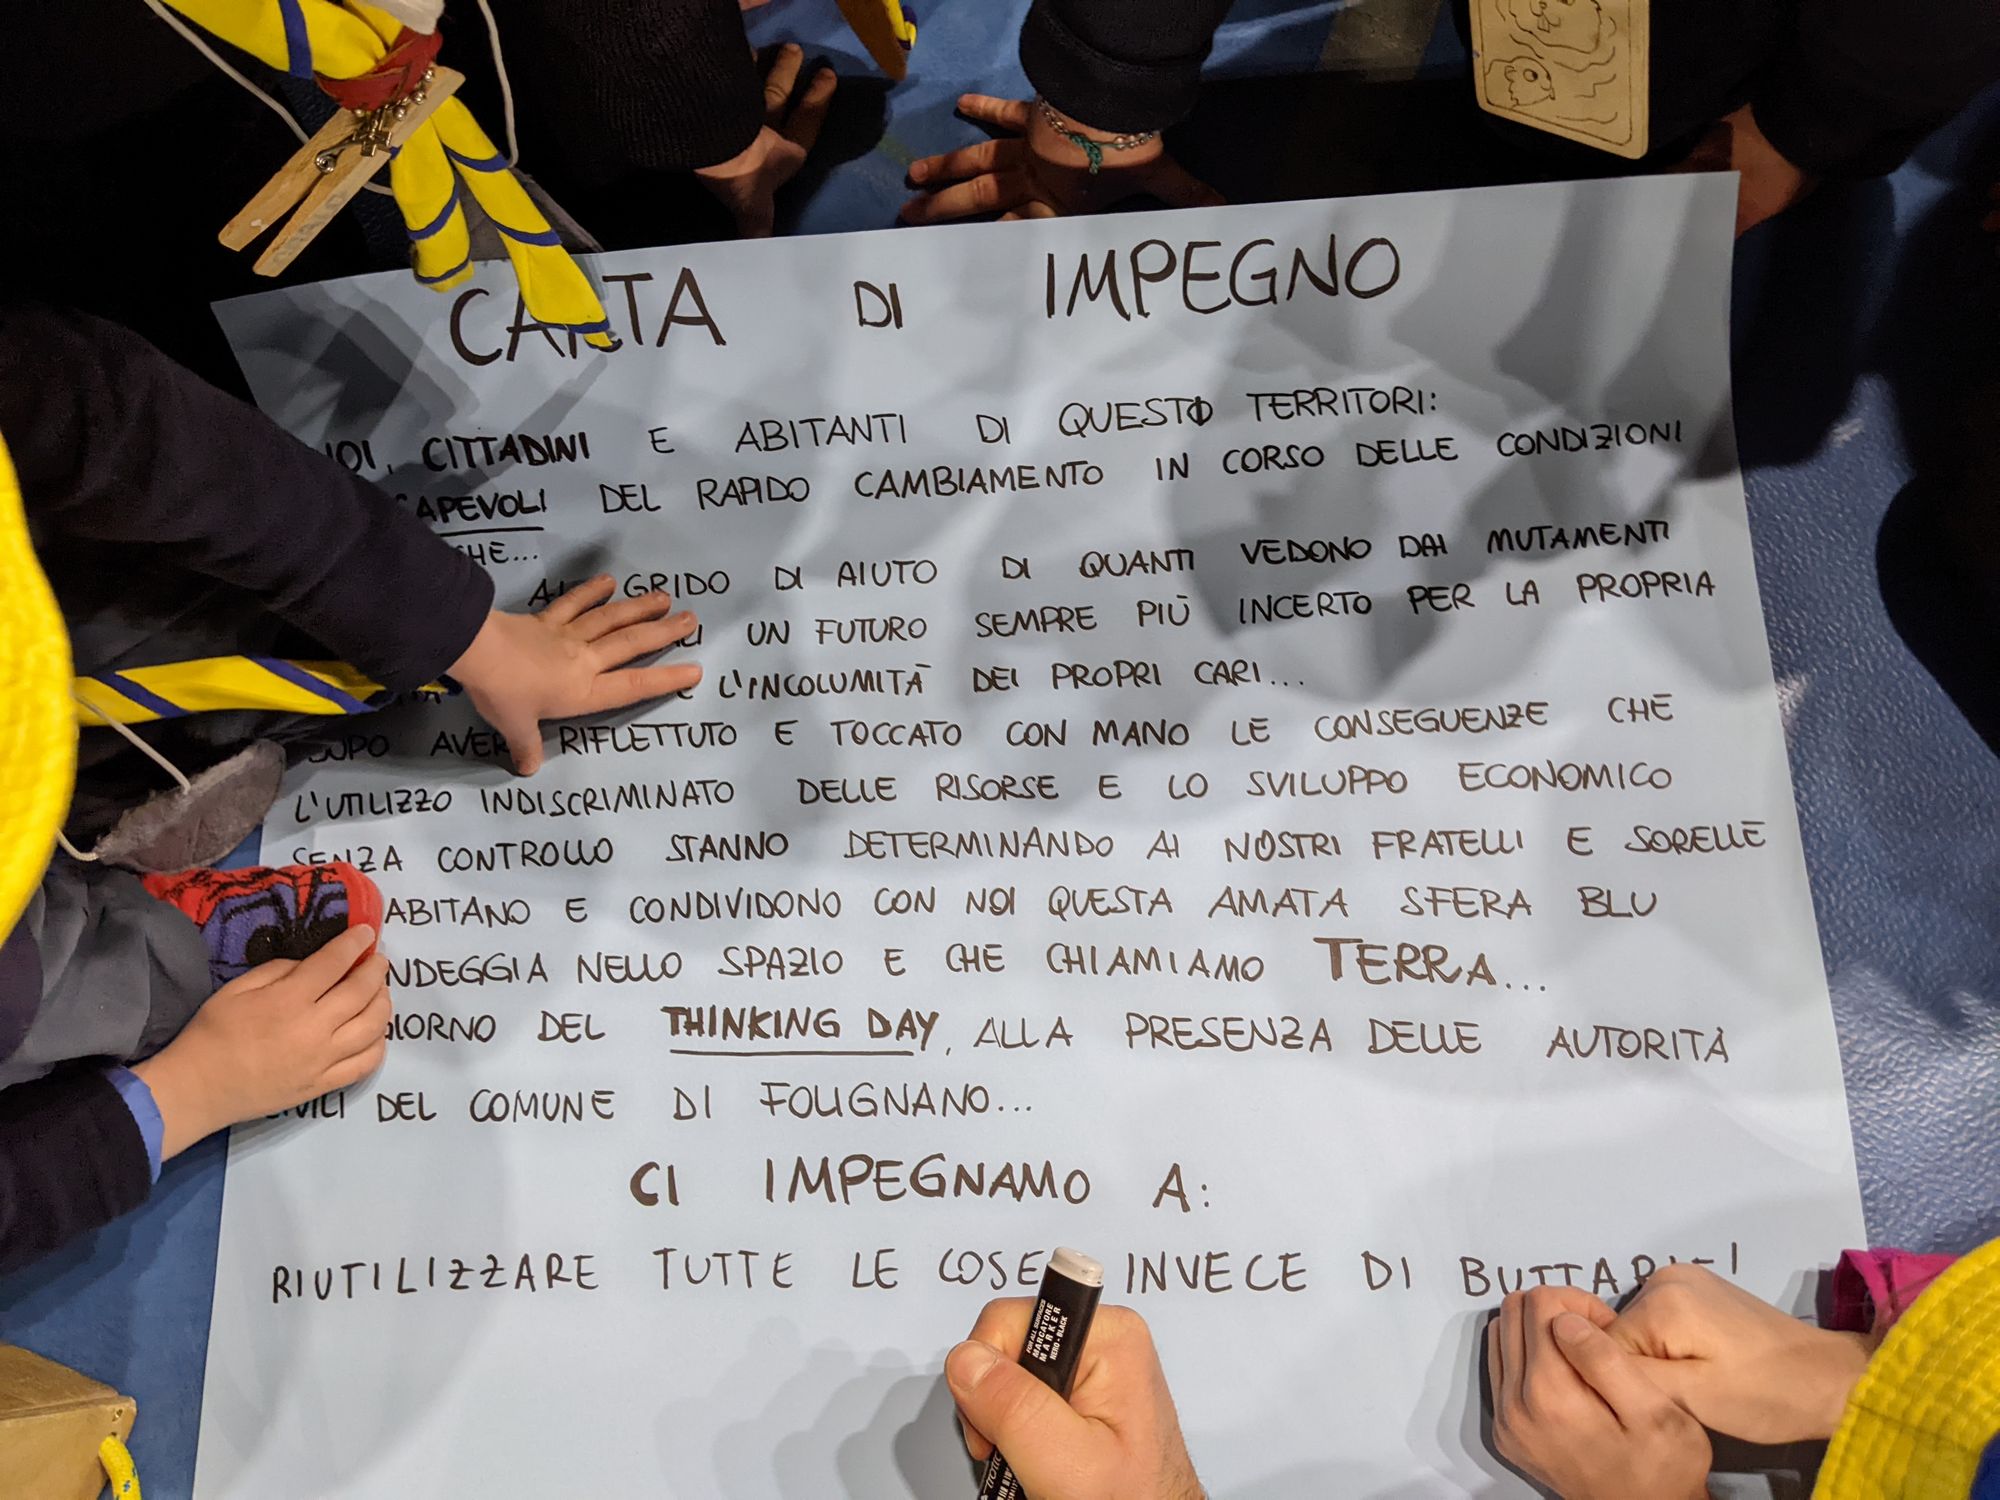 CARTA DI IMPEGNO
NOI, CITTADINI E ABITANTI DI QUESTO TERRITORI:
CAPEVOLI DEL RAPIDO CAMBIAMENTO IN CORSO DELLE CONDIZIONI
CHE...
AL GRIDO DI AIUTO DI QUANTI VEDONO DAI MUTAMENTI
ALI UN FUTURO SEMPRE PIÙ INCERTO PER LA PROPRIA
E L'INCOLUMITÀ DEI PROPRI CARI...
DOPO AVER RIFLETTUTO E TOCCATO CON MANO LE CONSEGUENZE CHE
L'UTILIZZO INDISCRIMINATO DELLE RISORSE E LO SVILUPPO ECONOMICO
SENZA CONTROLLO STANNO DETERMINANDO AI NOSTRI FRATELLI E SORELLE
ABITANO E CONDIVIDONO CON NOI QUESTA AMATA SFERA BLU
NDEGGIA NELLO SPAZIO E CHE CHIAMIAMO TERRA...
GIORNO DEL THINKING DAY, ALLA PRESENZA DELLE AUTORITÀ
CIVILI DEL COMUNE DI FOLIGNANO...
CI IMPEGNAMO A:
RIUTILIZZARE TUTTE LE COSE INVECE DI BUTTARLE!
FOR ALL SURFACES
MARCATORE
MARKER
NERO - BLACK